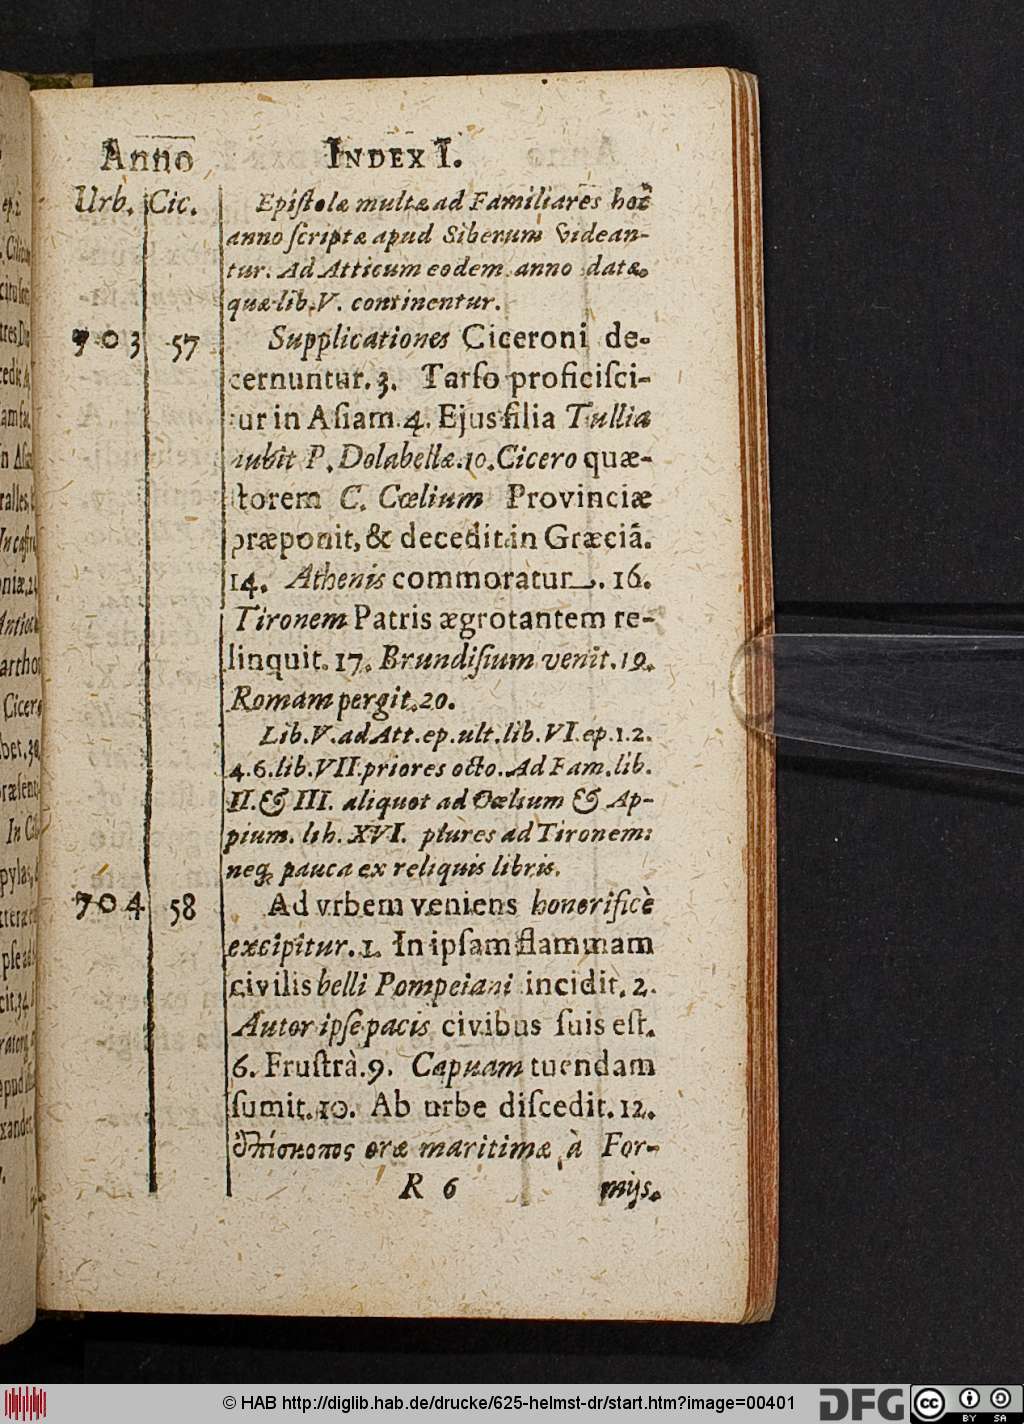 Anno INDEX I.
Urb. Cic. Epistolæ multæ ad Familiares hoc
anno scriptæ apud Siberum videan-
tur. Ad Atticum eodem anno datæ,
quæ lib. V. continentur.
703 57 Supplicationes Ciceroni de-
cernuntur. 3. Tarso proficisci-
tur in Asiam. 4. Ejus filia Tullia
nubit P. Dolabellæ. 10. Cicero quæ-
storem C. Cœlium Provinciæ
præponit, & decedit in Græciã.
14. Athenis commoratur. 16.
Tironem Patris ægrotantem re-
linquit. 17. Brundisium venit. 19.
Romam pergit. 20.
Lib. V. ad Att. ep. ult. lib. VI. ep. 1. 2.
4. 6. lib. VII. priores octo. Ad Fam. lib.
II. & III. aliquot ad Cœlium & Ap-
pium. lib. XVI. plures ad Tironem:
neq; pauca ex reliquis libris.
704 58 Ad vrbem veniens honorificè
excipitur. 1. In ipsam flammam
civilis belli Pompeiani incidit. 2.
Autor ipse pacis civibus suis est.
6. Frustrà. 9. Capuam tuendam
sumit. 10. Ab urbe discedit. 12.
ἐπίσκοπος oræ maritimæ à For-
R 6 mijs.
© HAB http://diglib.hab.de/drucke/625-helmst-dr/start.htm?image=00401
DFG
cc BY SA